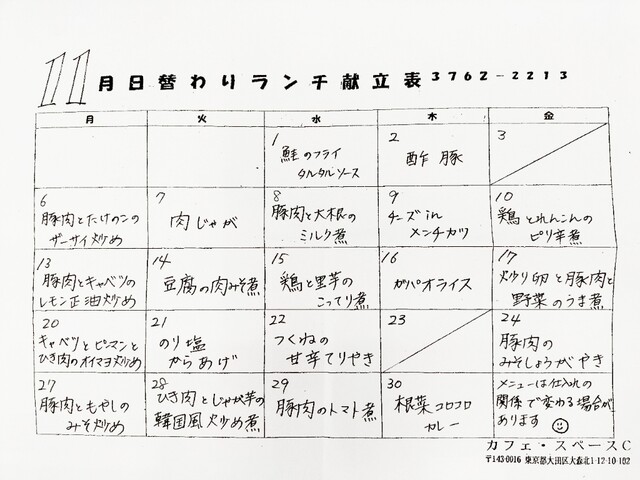 11月日替わりランチ献立表 3762-2213
月 火 水 木 金
1
鮭のフライ
タルタルソース
2
酢豚
3
6
豚肉とたけのこの
ザーサイ炒め
7
肉じゃが
8
豚肉と大根の
ミルク煮
9
チーズin
メンチカツ
10
鶏とれんこんの
ピリ辛煮
13
豚肉とキャベツの
レモン正油炒め
14
豆腐の肉みそ煮
15
鶏と里芋の
こってり煮
16
ガパオライス
17
炒り卵と豚肉と
野菜のうま煮
20
キャベツとピーマンと
ひき肉のオイマヨ炒め
21
のり塩
からあげ
22
つくねの
甘辛てりやき
23
24
豚肉の
みそしょうがやき
27
豚肉ともやしの
みそ炒め
28
ひき肉とじゃが芋の
韓国風炒め煮
29
豚肉のトマト煮
30
根菜コロコロ
カレー
メニューは仕入れの
関係で変わる場合が
あります
カフェ・スペースC
〒143-0016 東京都大田区大森北1-12-10-102